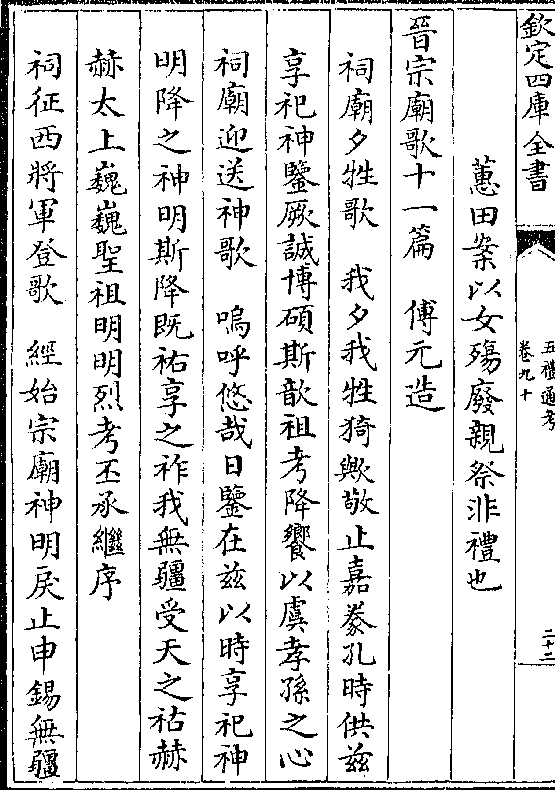 欽定四庫全書
五禮通考
卷九十
二十二
蕙田案以女殤廢親祭非禮也
晉宗廟歌十一篇 傅元造
祠廟夕牲歌 我夕我牲猗歟敬止嘉豢孔時供兹
享祀神鑒厥誠博碩斯歆祖考降饗以虞孝孫之心
祠廟迎送神歌 嗚呼悠哉日鑒在兹以時享祀神
明降之神明斯降既祐享之祚我無疆受天之祜赫
赫太上巍巍聖祖明明烈考丕承繼序
祠征西將軍登歌 經始宗廟神明戾止申錫無疆